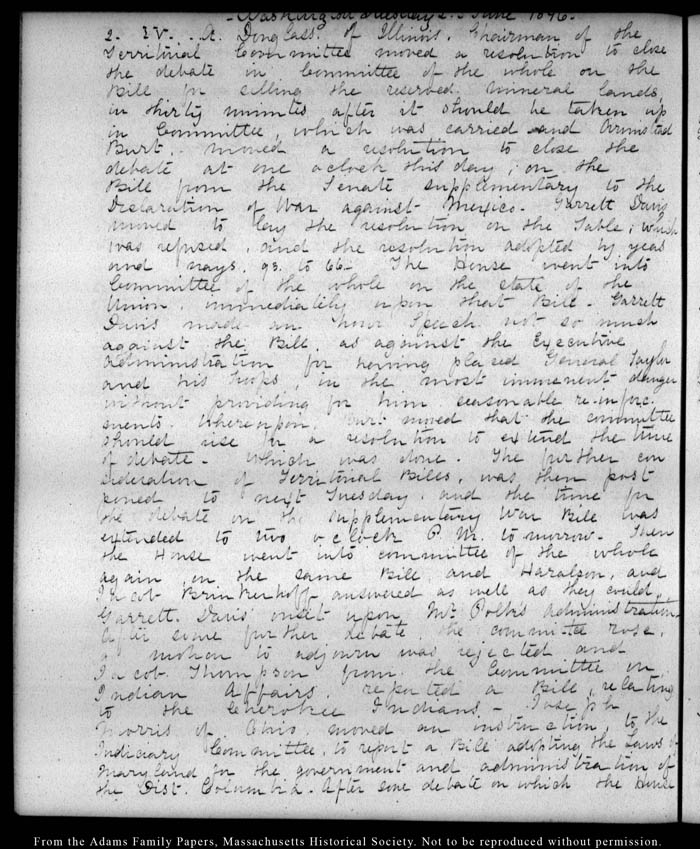 Washington Tuesday 2. June 1846.
2. IV. A. Douglass, of Illinois, Chairman of the
Territorial Committee moved a resolution to close
the debate in Committee of the whole on the
Bill for selling the reserved mineral lands,
in thirty minutes after it should be taken up
in Committee, which was carried and Armistead
Burt, moved a resolution to close the
debate at one o clock this day; on the
Bill from the Senate supplementary to the
Declaration of War against Mexico. Garrett Davis
moved to lay the resolution on the Table; which
was refused, and the resolution adopted by yeas
and nays. 93. to 66. The House went into
Committee of the whole on the state of the
Union. immediately upon that Bill. Garrett
Davis made an hour Speech not so much
against the Bill, as against the Executive
administration for having placed General Taylor
and his troops, in the most imminent danger
without providing for him seasonable re-inforce
ments. Whereupon, Burt moved that the committee
should rise for a resolution to extend the time
of debate. which was done. The further con
sideration of Territorial Bills, was then post
poned to next Tuesday. and the time for
the debate on the supplementary War Bill was
extended to two o clock P. M. to morrow. Then
the House went into committee of the whole
again on the same Bill and Haralson, and
Jacob Brinkerhoff answered as well as they could,
Garrett Davis' onset upon Mr Polk's administration.
After some further debate, the committee rose.
a motion to adjourn was rejected and
Jacob Thompson from the Committee on
Indian Affairs, reported a Bill, relating
to the Cherokee Indians - Joseph
Morris of Ohio moved an instruction to the
Judiciary Committee, to report a Bill adopting the Laws of
Maryland for the government and administration of
the Dist. Columbia. After some debate on which the House
From the Adams Family Papers, Massachusetts Historical Society. Not to be reproduced without permission.